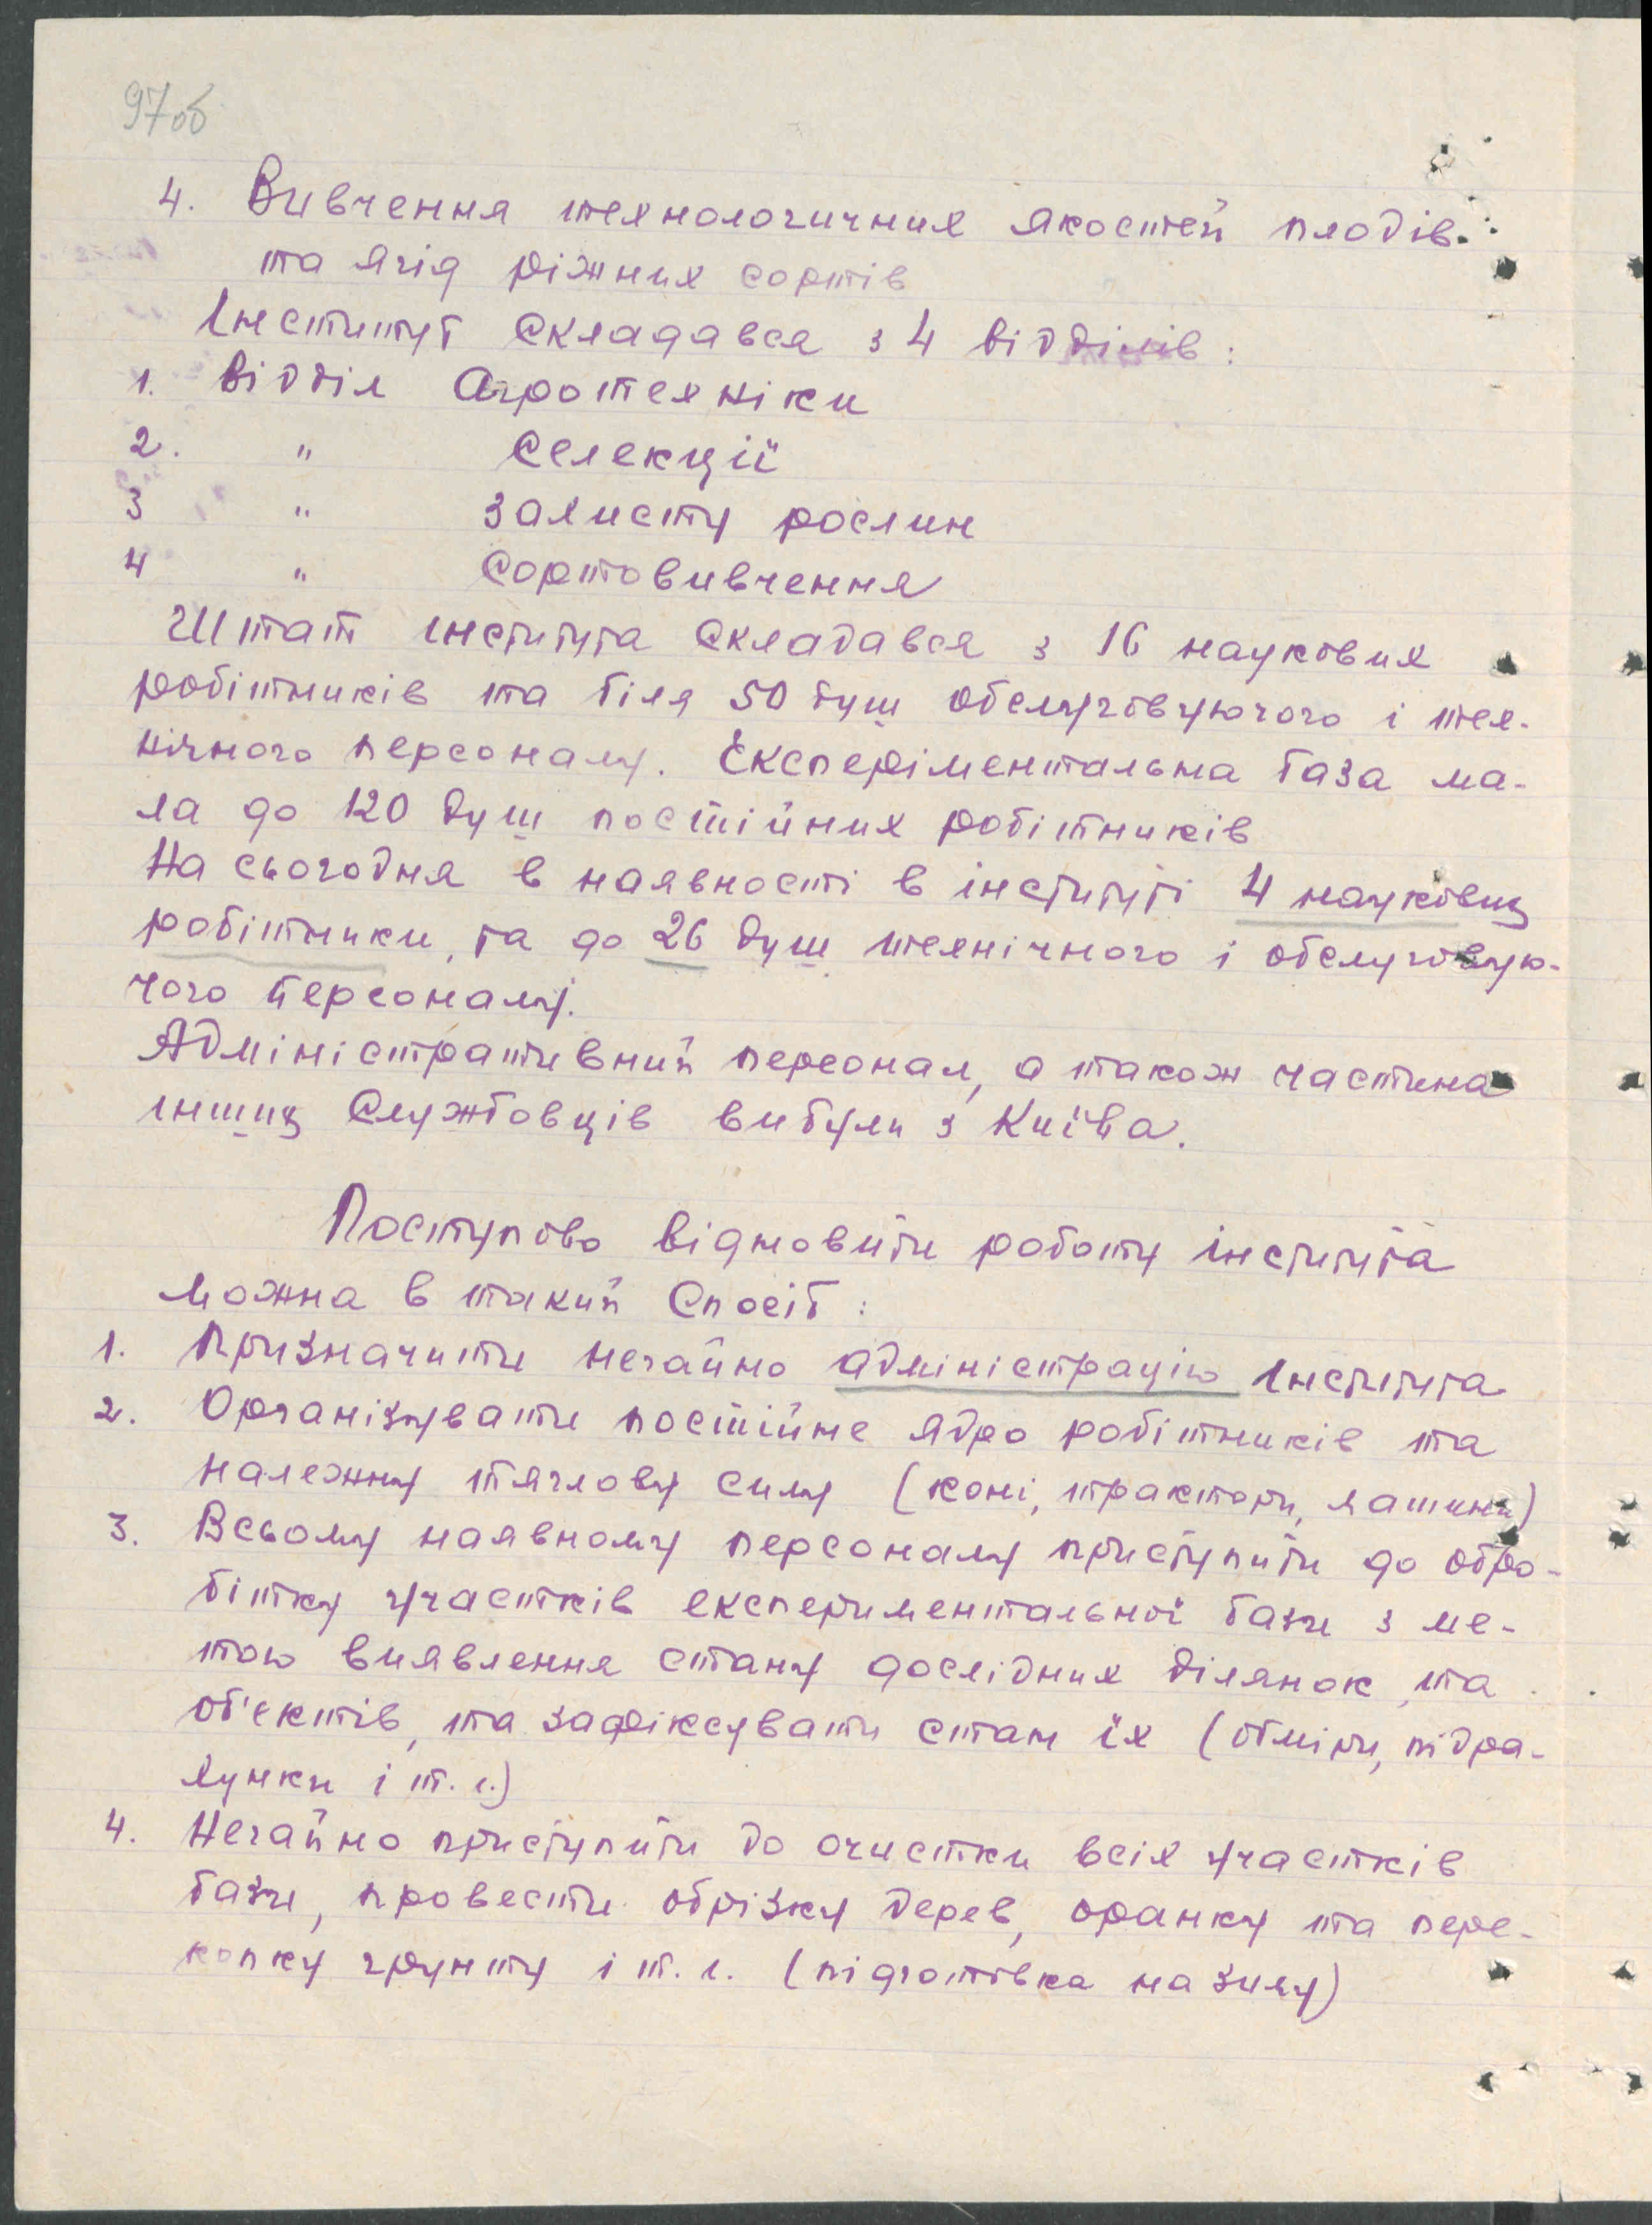 97об
4. Вивчення технологичних якостей плодів
та ягід ріжних сортів
Інститут складався з 4 відділів:
1. Відділ Агротехніки
2. " Селекції
3 " Захисту рослин
4 " Сортовивчення
Штат інститута складався з 16 наукових
робітників та біля 50 душ обслуговуючого і тех-
нічного персоналу. Експеріментальна база ма-
ла до 120 душ постійних робітників
На сьогодня в наявності в інституті 4 наукових
робітники, та до 26 душ технічного і обслуговую-
чого персоналу.
Адміністративний персонал, а також частина
інших службовців вибули з Київа.
Поступово відновити роботу інститута
можна в такий спосіб:
1. Призначити негайно адміністрацію Інститута
2. Організувати постійне ядро робітників та
належну тяглову силу (коні, трактори, машини)
3. Всьому наявному персоналу приступити до обро-
бітку участків експериментальної бази з ме-
тою виявлення стану дослідних ділянок, та
об'єктів, та зафіксувати стан їх (обміри, підра-
хунки і т. і.)
4. Негайно приступити до очистки всіх участків
бази, провести обрізку дерев, оранку та пере-
копку грунту і т. і. (підготовка на зиму)